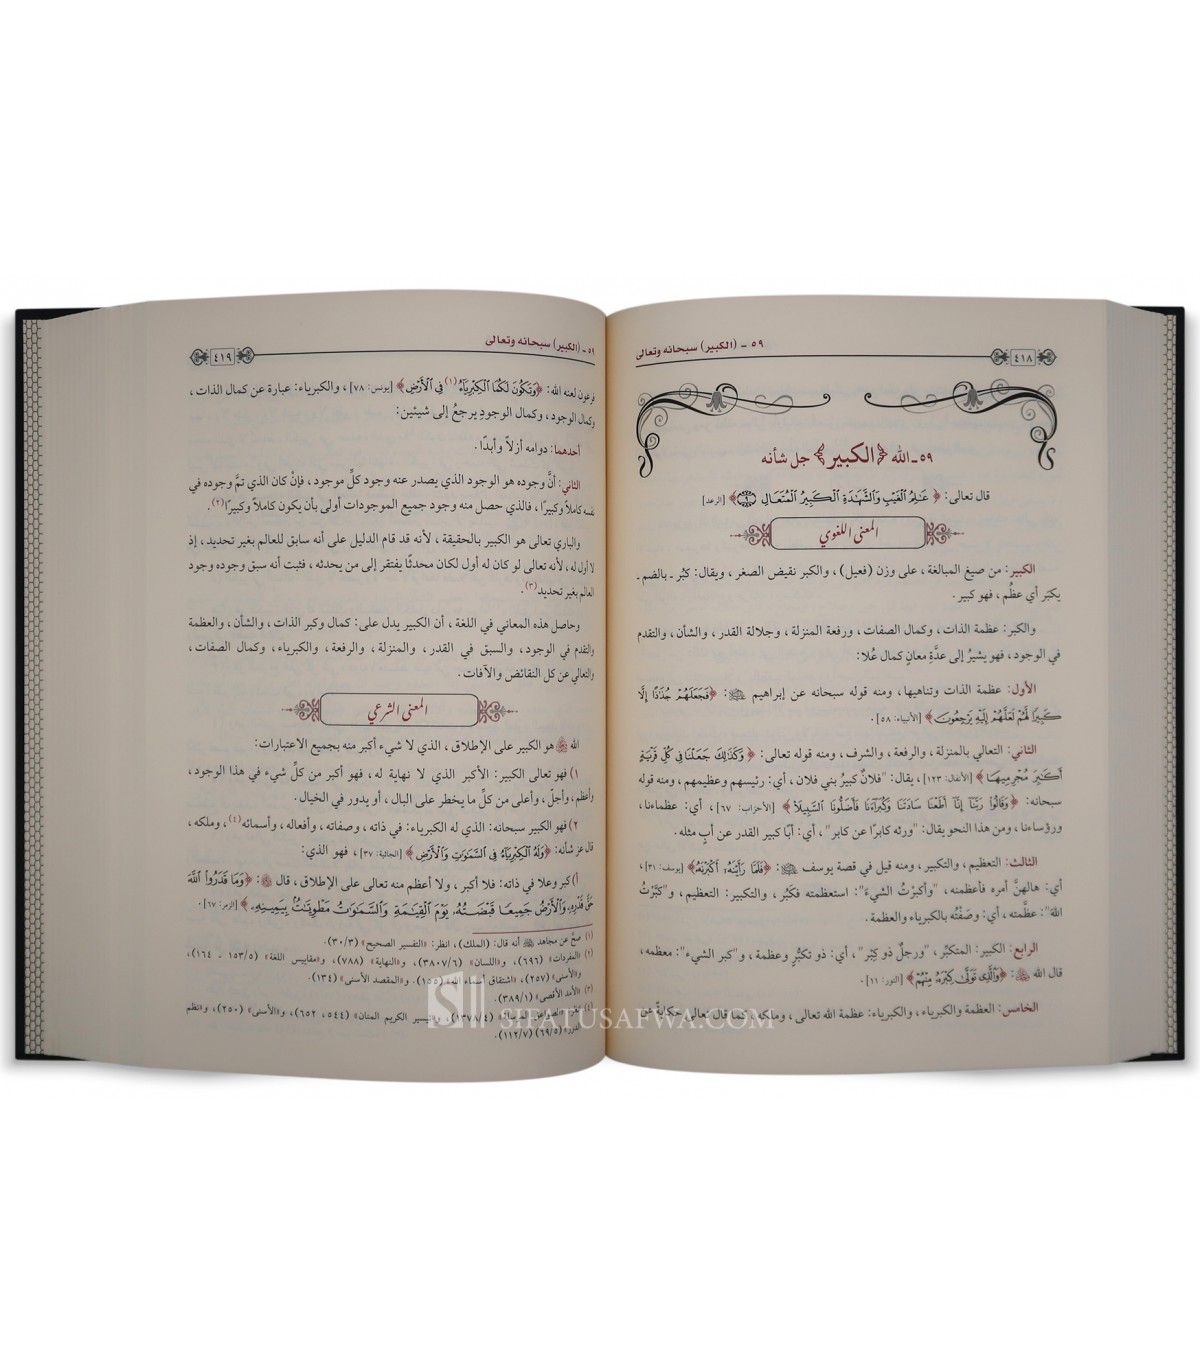 ٥٩ - (الكبير) سبحانه وتعالى
٤١٨
٥٩ـ الله ﴿الكبير﴾ جل شأنه
قال تعالى: ﴿ عَٰلِمُ ٱلْغَيْبِ وَٱلشَّهَٰدَةِ ٱلْكَبِيرُ ٱلْمُتَعَالِ ٩﴾ [الرعد]
المعنى اللغوي
الكبير: من صيغ المبالغة، على وزن (فعيل)، والكبر نقيض الصغر، ويقال: كبُر ـ بالضم ـ
يكبَر أي عظُم، فهو كبير.
والكبر: عظمة الذات، وكمال الصفات، ورفعة المنزلة، وجلالة القدر، والشأن، والتقدم
في الوجود، فهو يشيرُ إلى عدَّةِ معانٍ كمال عُلا:
الأول: عظمة الذات وتناهيها، ومنه قوله سبحانه عن إبراهيم ﷺ: ﴿فَجَعَلَهُمْ جُذَٰذًا إِلَّا
كَبِيرًا لَّهُمْ لَعَلَّهُمْ إِلَيْهِ يَرْجِعُونَ﴾ [الأنبياء: ٥٨].
الثاني: التعالي بالمنزلة، والرفعة، والشرف، ومنه قوله تعالى: ﴿ وَكَذَٰلِكَ جَعَلْنَا فِى كُلِّ قَرْيَةٍ
أَكَٰبِرَ مُجْرِمِيهَا ﴾ [الأنفال: ١٢٣]، يقال: "فلانٌ كبيرُ بني فلان، أي: رئيسهم وعظيمهم، ومنه قوله
سبحانه: ﴿ وَقَالُوا۟ رَبَّنَآ إِنَّآ أَطَعْنَا سَادَتَنَا وَكُبَرَآءَنَا فَأَضَلُّونَا ٱلسَّبِيلَا۠ ﴾ [الأحزاب: ٦٧]، أي: عظماءنا،
ورؤساءنا، ومن هذا النحو يقال: "ورثه كابرًا عن كابر"، أي: أبًا كبير القدر عن أبٍ مثله.
الثالث: التعظيم، والتكبير، ومنه قيل في قصة يوسف ﷺ: ﴿فَلَمَّا رَأَيْنَهُۥٓ أَكْبَرْنَهُۥ﴾ [يوسف: ٣١]،
أي: هالهنَّ أمره فأعظمنه، "وأكبرْتُ الشيءَ": استعظمته فكَبُر، والتكبير: التعظيم، و"كَبَّرْتُ
اللهَ": عظَّمته، أي: وصَفْتُه بالكبرياء والعظمة.
الرابع: الكبير: المتكبِّر، "ورجلٌ ذو كِبْر"، أي: ذو تكبُّرٍ وعظمة، و"كبر الشيء": معظمه،
قال الله ﷻ: ﴿وَٱلَّذِى تَوَلَّىٰ كِبْرَهُۥ مِنْهُمْ﴾ [النور: ١١].
الخامس: العظمة والكبرياء، والكبرياء: عظمة الله تعالى، وملكه، كما قال تعالى حكايةً عن
٥٩ - (الكبير) سبحانه وتعالى
٤١٩
فرعون لعنه الله: ﴿وَتَكُونَ لَكُمَا ٱلْكِبْرِيَآءُ(١) فِى ٱلْأَرْضِ﴾ [يونس: ٧٨]، والكبرياء: عبارة عن كمال الذات،
وكمال الوجود، وكمال الوجودِ يرجعُ إلى شيئين:
أحدهما: دوامه أزلاً وأبدًا.
الثاني: أنَّ وجوده هو الوجود الذي يصدر عنه وجود كلِّ موجود، فإنْ كان الذي تمَّ وجوده في
نفسه كاملاً وكبيرًا، فالذي حصل منه وجود جميع الموجودات أولى بأن يكون كاملاً وكبيرًا(٢).
والباري تعالى هو الكبير بالحقيقة، لأنه قد قام الدليل على أنه سابق للعالم بغير تحديد، إذ
لا أول له، لأنه تعالى لو كان له أول لكان محدثًا يفتقر إلى من يحدثه، فثبت أنه سبق وجوده وجود
العالم بغير تحديد(٣).
وحاصل هذه المعاني في اللغة، أن الكبير يدل على: كمال وكبر الذات، والشأن، والعظمة
والتقدم في الوجود، والسبق في القدر، والمنزلة، والرفعة، والكبرياء، وكمال الصفات،
والتعالي عن كل النقائض والآفات.
المعنى الشرعي
الله ﷻ هو الكبير على الإطلاق، الذي لا شيء أكبر منه بجميع الاعتبارات:
١) فهو تعالى الكبير: الأكبر الذي لا نهاية له، فهو أكبر من كلِّ شيء في هذا الوجود،
وأعظم، وأجلّ، وأعلى من كلِّ ما يخطر على البال، أو يدور في الخيال.
٢) فهو الكبير سبحانه: الذي له الكبرياء: في ذاته، وصفاته، وأفعاله، وأسمائه(٤)، وملكه،
قال عز شأنه: ﴿وَلَهُ ٱلْكِبْرِيَآءُ فِى ٱلسَّمَٰوَٰتِ وَٱلْأَرْضِ﴾ [الجاثية: ٣٧]، فهو الذي:
أ) كبر وعلا في ذاته: فلا أكبر، ولا أعظم منه تعالى على الإطلاق، قال ﷻ: ﴿وَمَا قَدَرُوا۟ ٱللَّهَ
حَقَّ قَدْرِهِۦ وَٱلْأَرْضُ جَمِيعًا قَبْضَتُهُۥ يَوْمَ ٱلْقِيَٰمَةِ وَٱلسَّمَٰوَٰتُ مَطْوِيَّٰتٌۢ بِيَمِينِهِۦ﴾ [الزمر: ٦٧].
(١) صحَّ عن مجاهد أنه قال: (الملك)، انظر: «التفسير الصحيح» (٣٠/٣).
(٢) «المفردات» (٦٩٦)، و«اللسان» (٣٨٠٧/٦)، و«النهاية» (٧٨٨)، و«مقاييس اللغة» (١٥٣/٥ ـ ١٦٤)،
و«الأسنى» (٢٥٧)، «اشتقاق أسماء الله» (١٥٥). و«المقصد الأسنى» (١٣٤).
(٣) «الأمد الأقصى» (٣٨٩/١).
(١٣٧٨/٤)، و«تيسير الكريم المنان» (٥٤٤، ٦٥٢)، و«الأسنى» (٢٥٠)، و«نظم
الدرر» (٦٩/٥) (١١٢/٧).
SIFATUSAFWA.COM